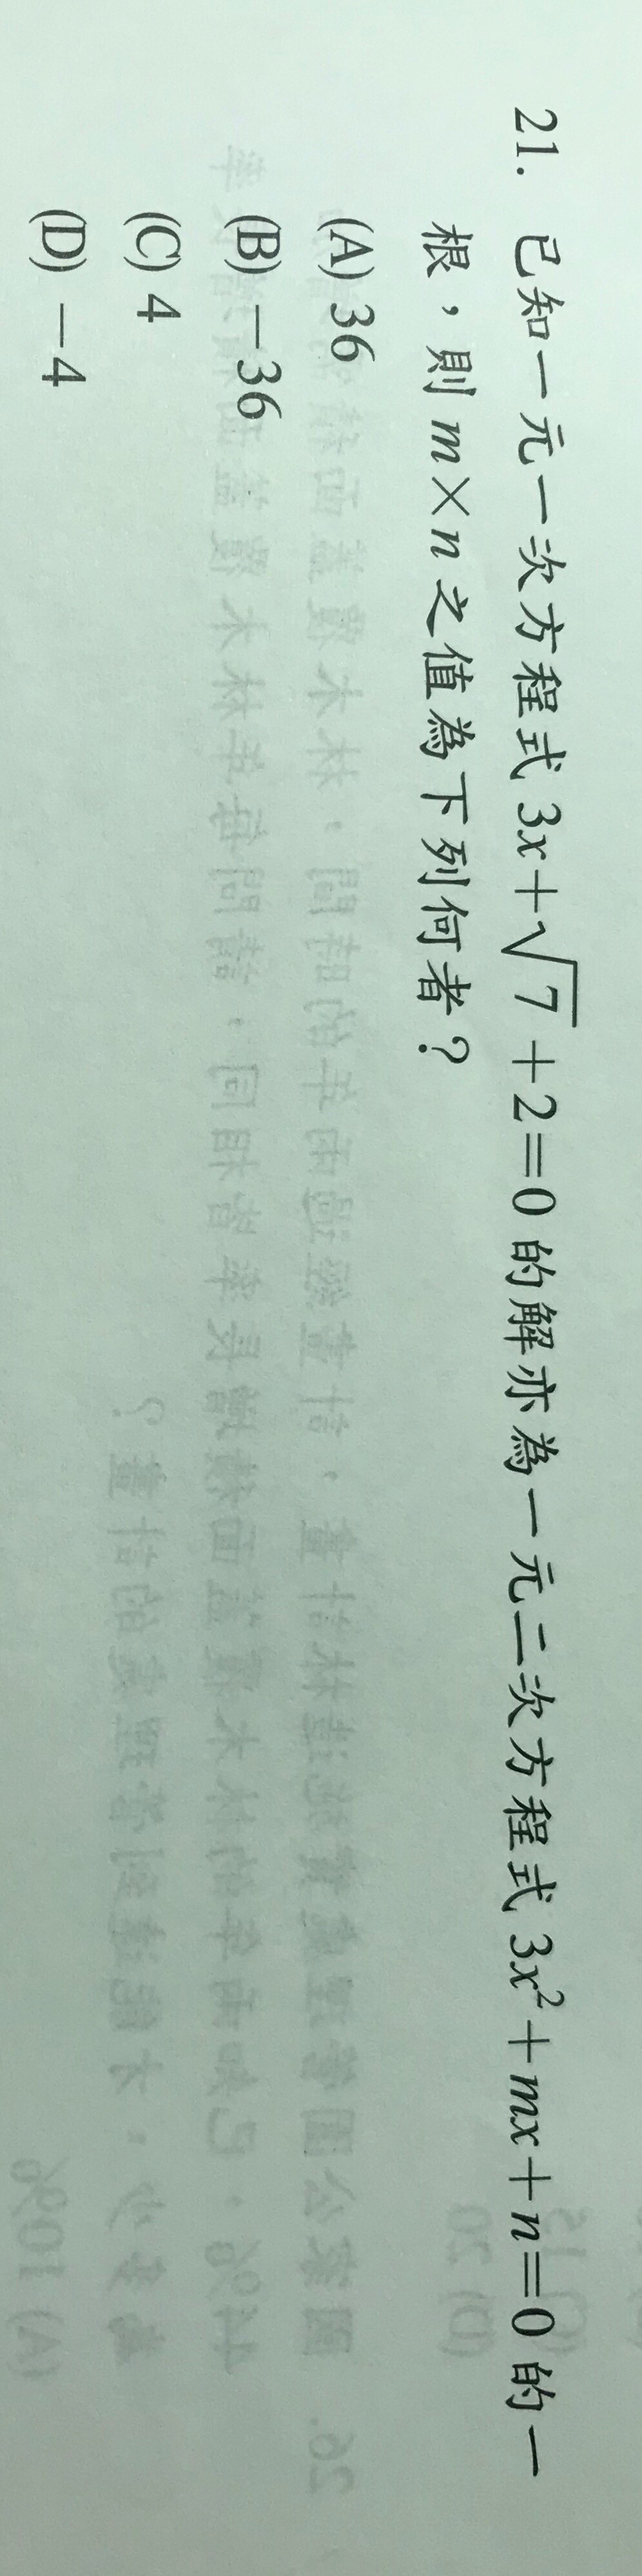 21. 已知一元一次方程式 3x+√7+2=0 的解亦為一元二次方程式 3x²+mx+n=0 的一
根，則 m×n 之值為下列何者？
(A) 36
(B) −36
(C) 4
(D) −4